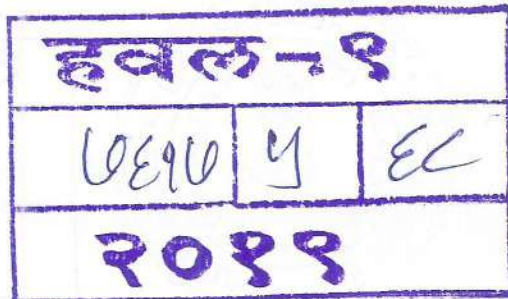 हवल-९
७६१७ ५ ६८
२०१९